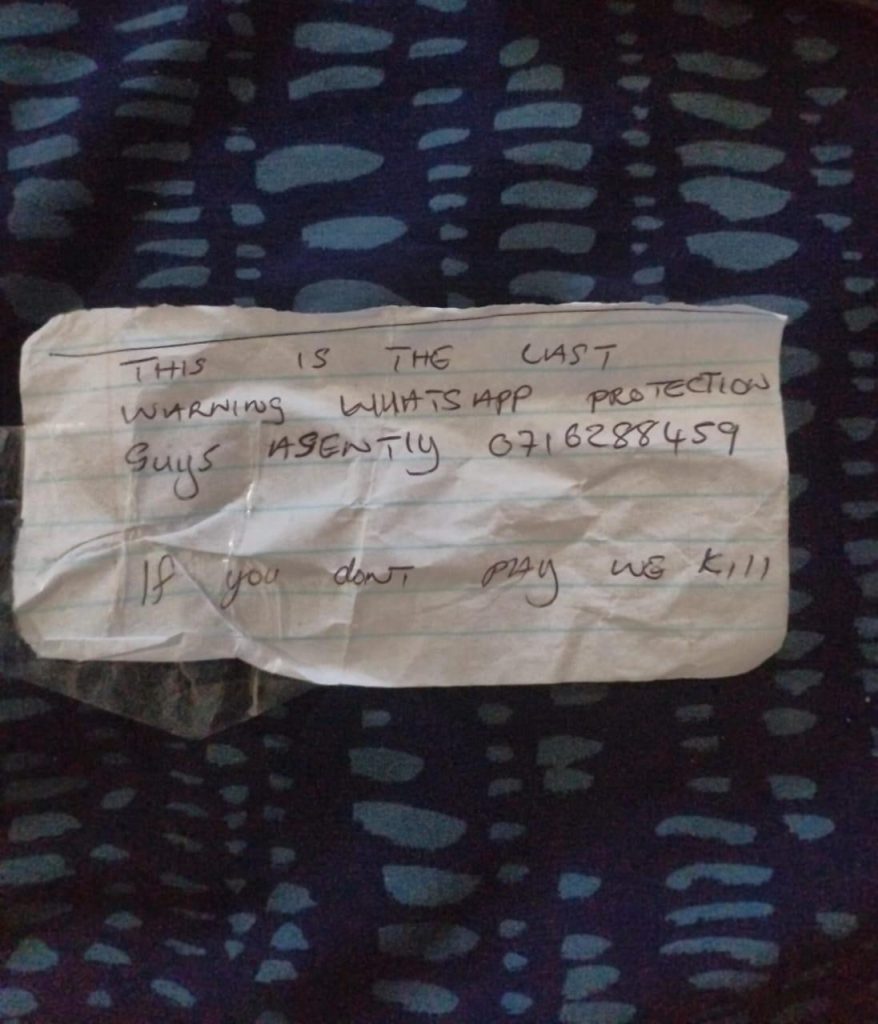 THIS IS THE LAST
WARNING WHATSAPP PROTECTION
Guys ASENTLY 0716288459
If you dont PAY WE Kill